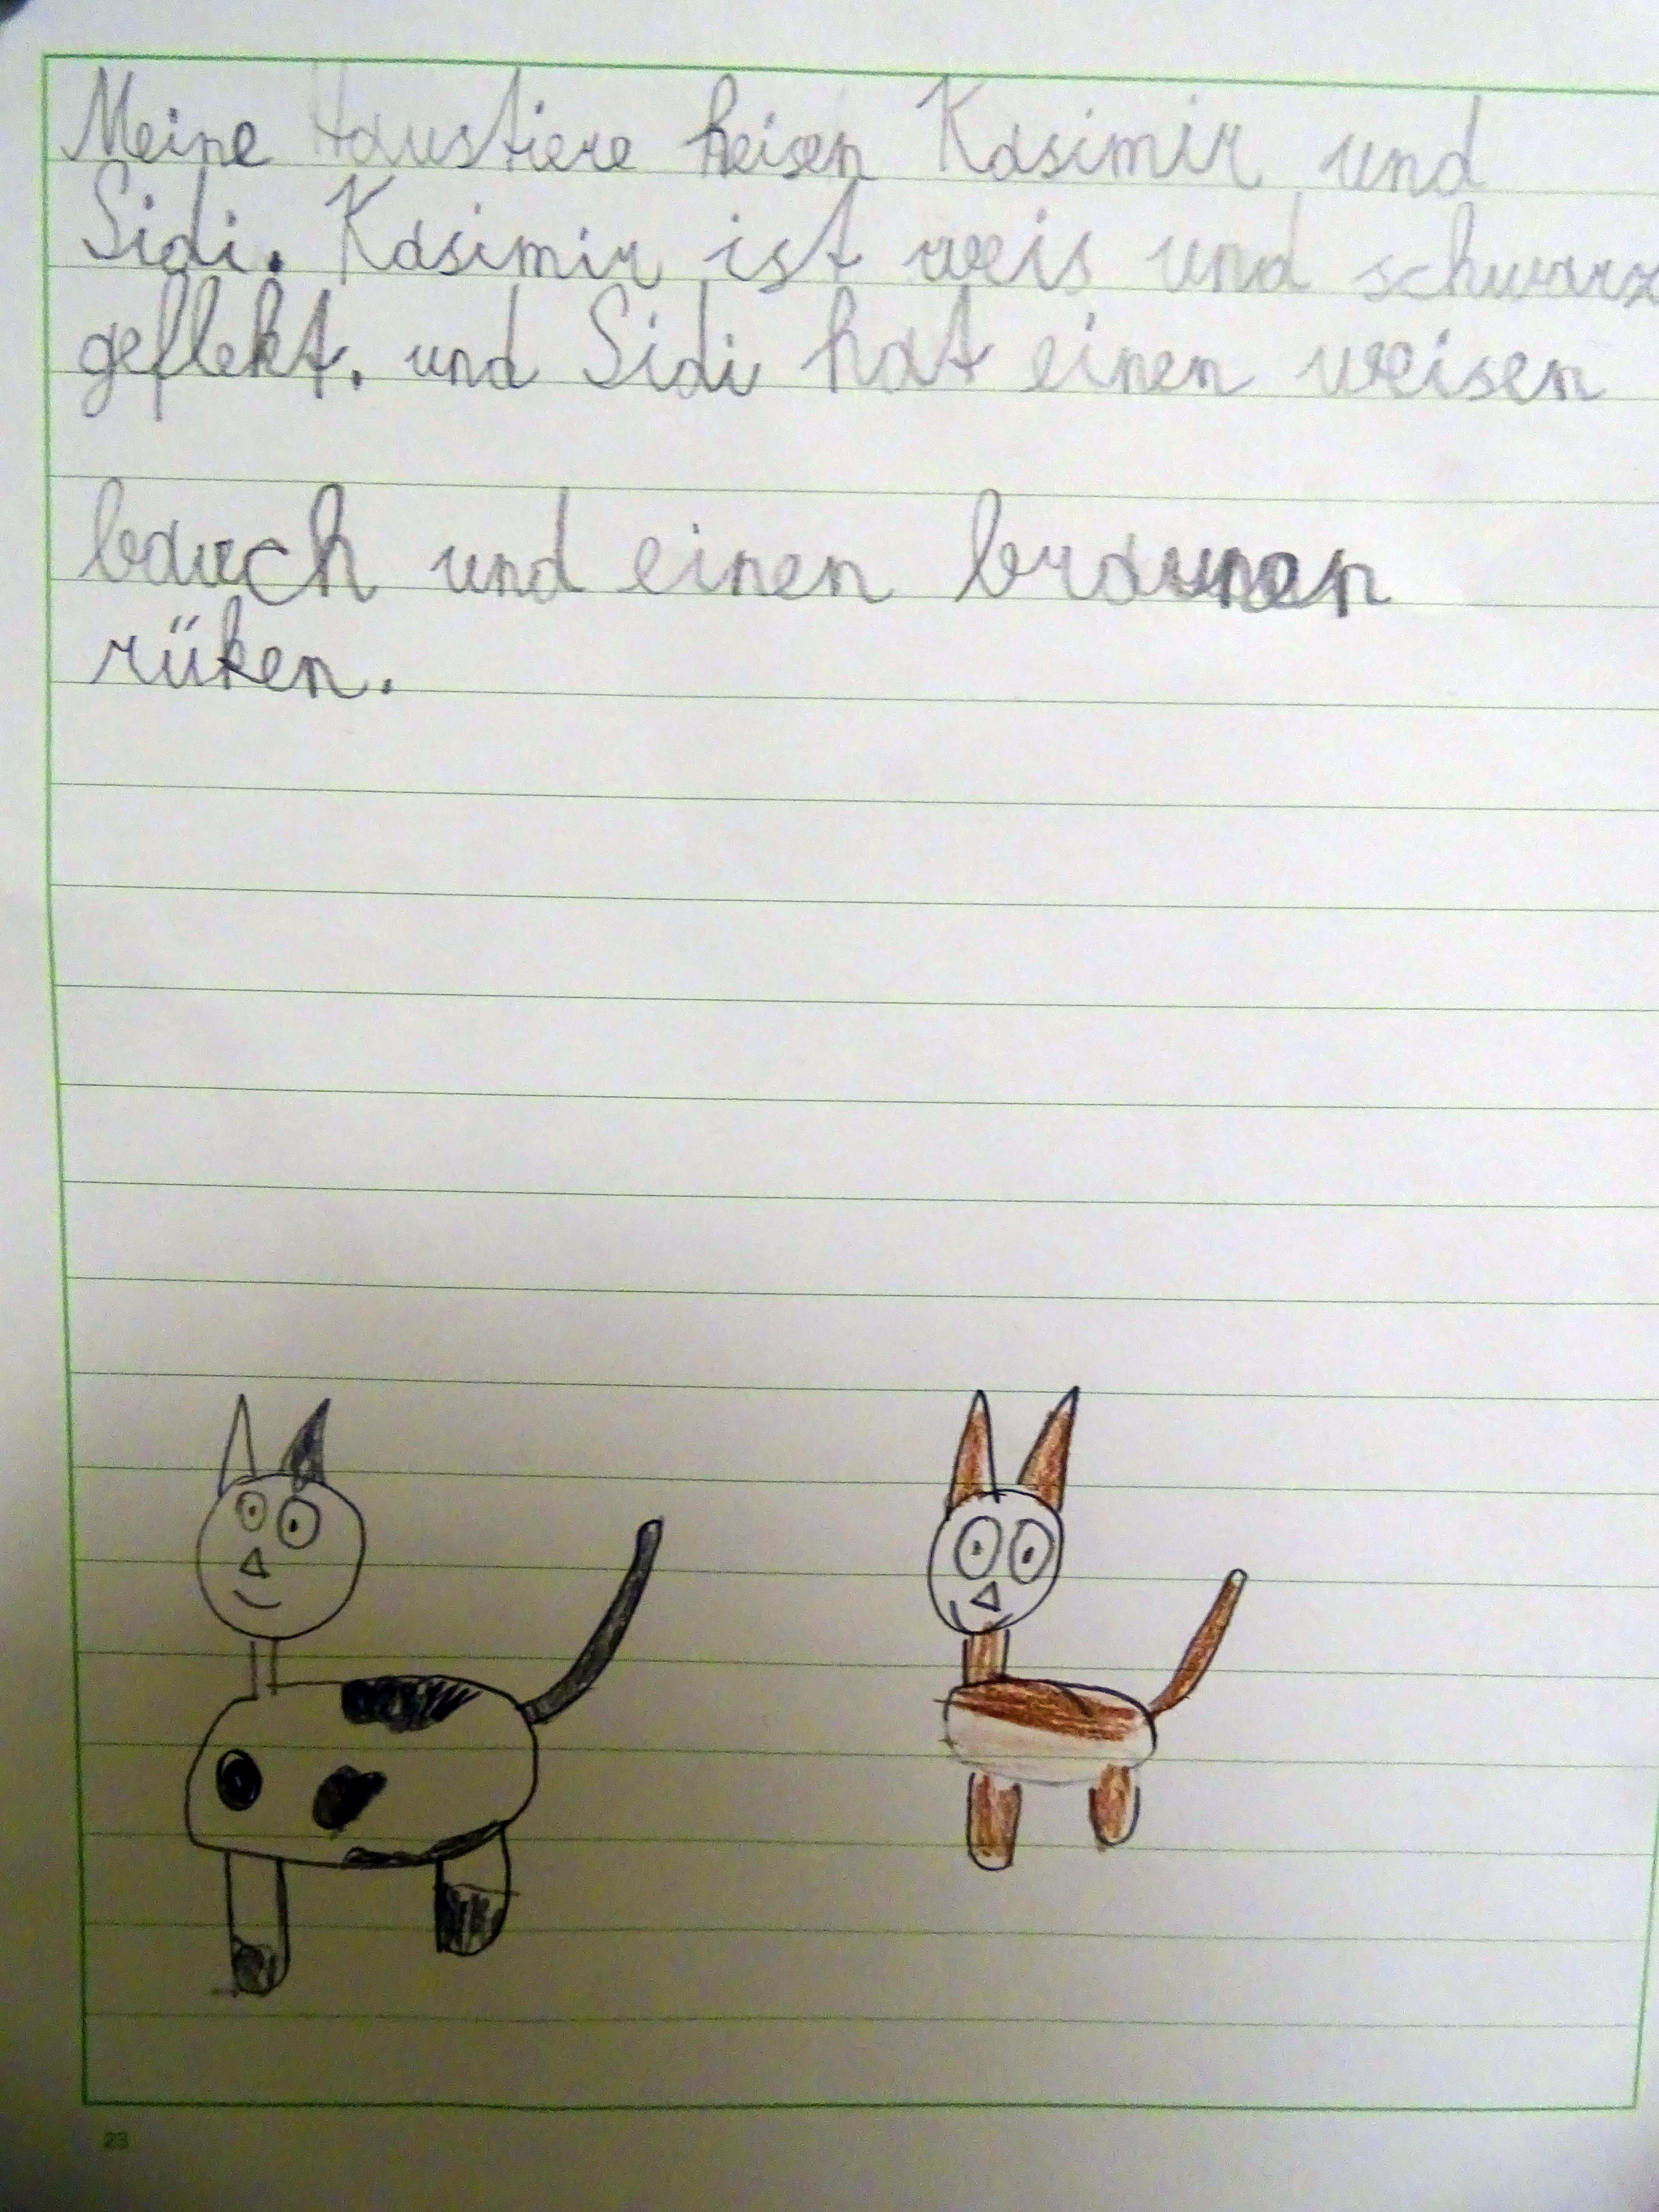 Meine Haustiere heisen Kasimir und
Sidi. Kasimir ist weis und schwarz
geflekt. und Sidi hat einen weisen
bauch und einen braunen
rüken.
23